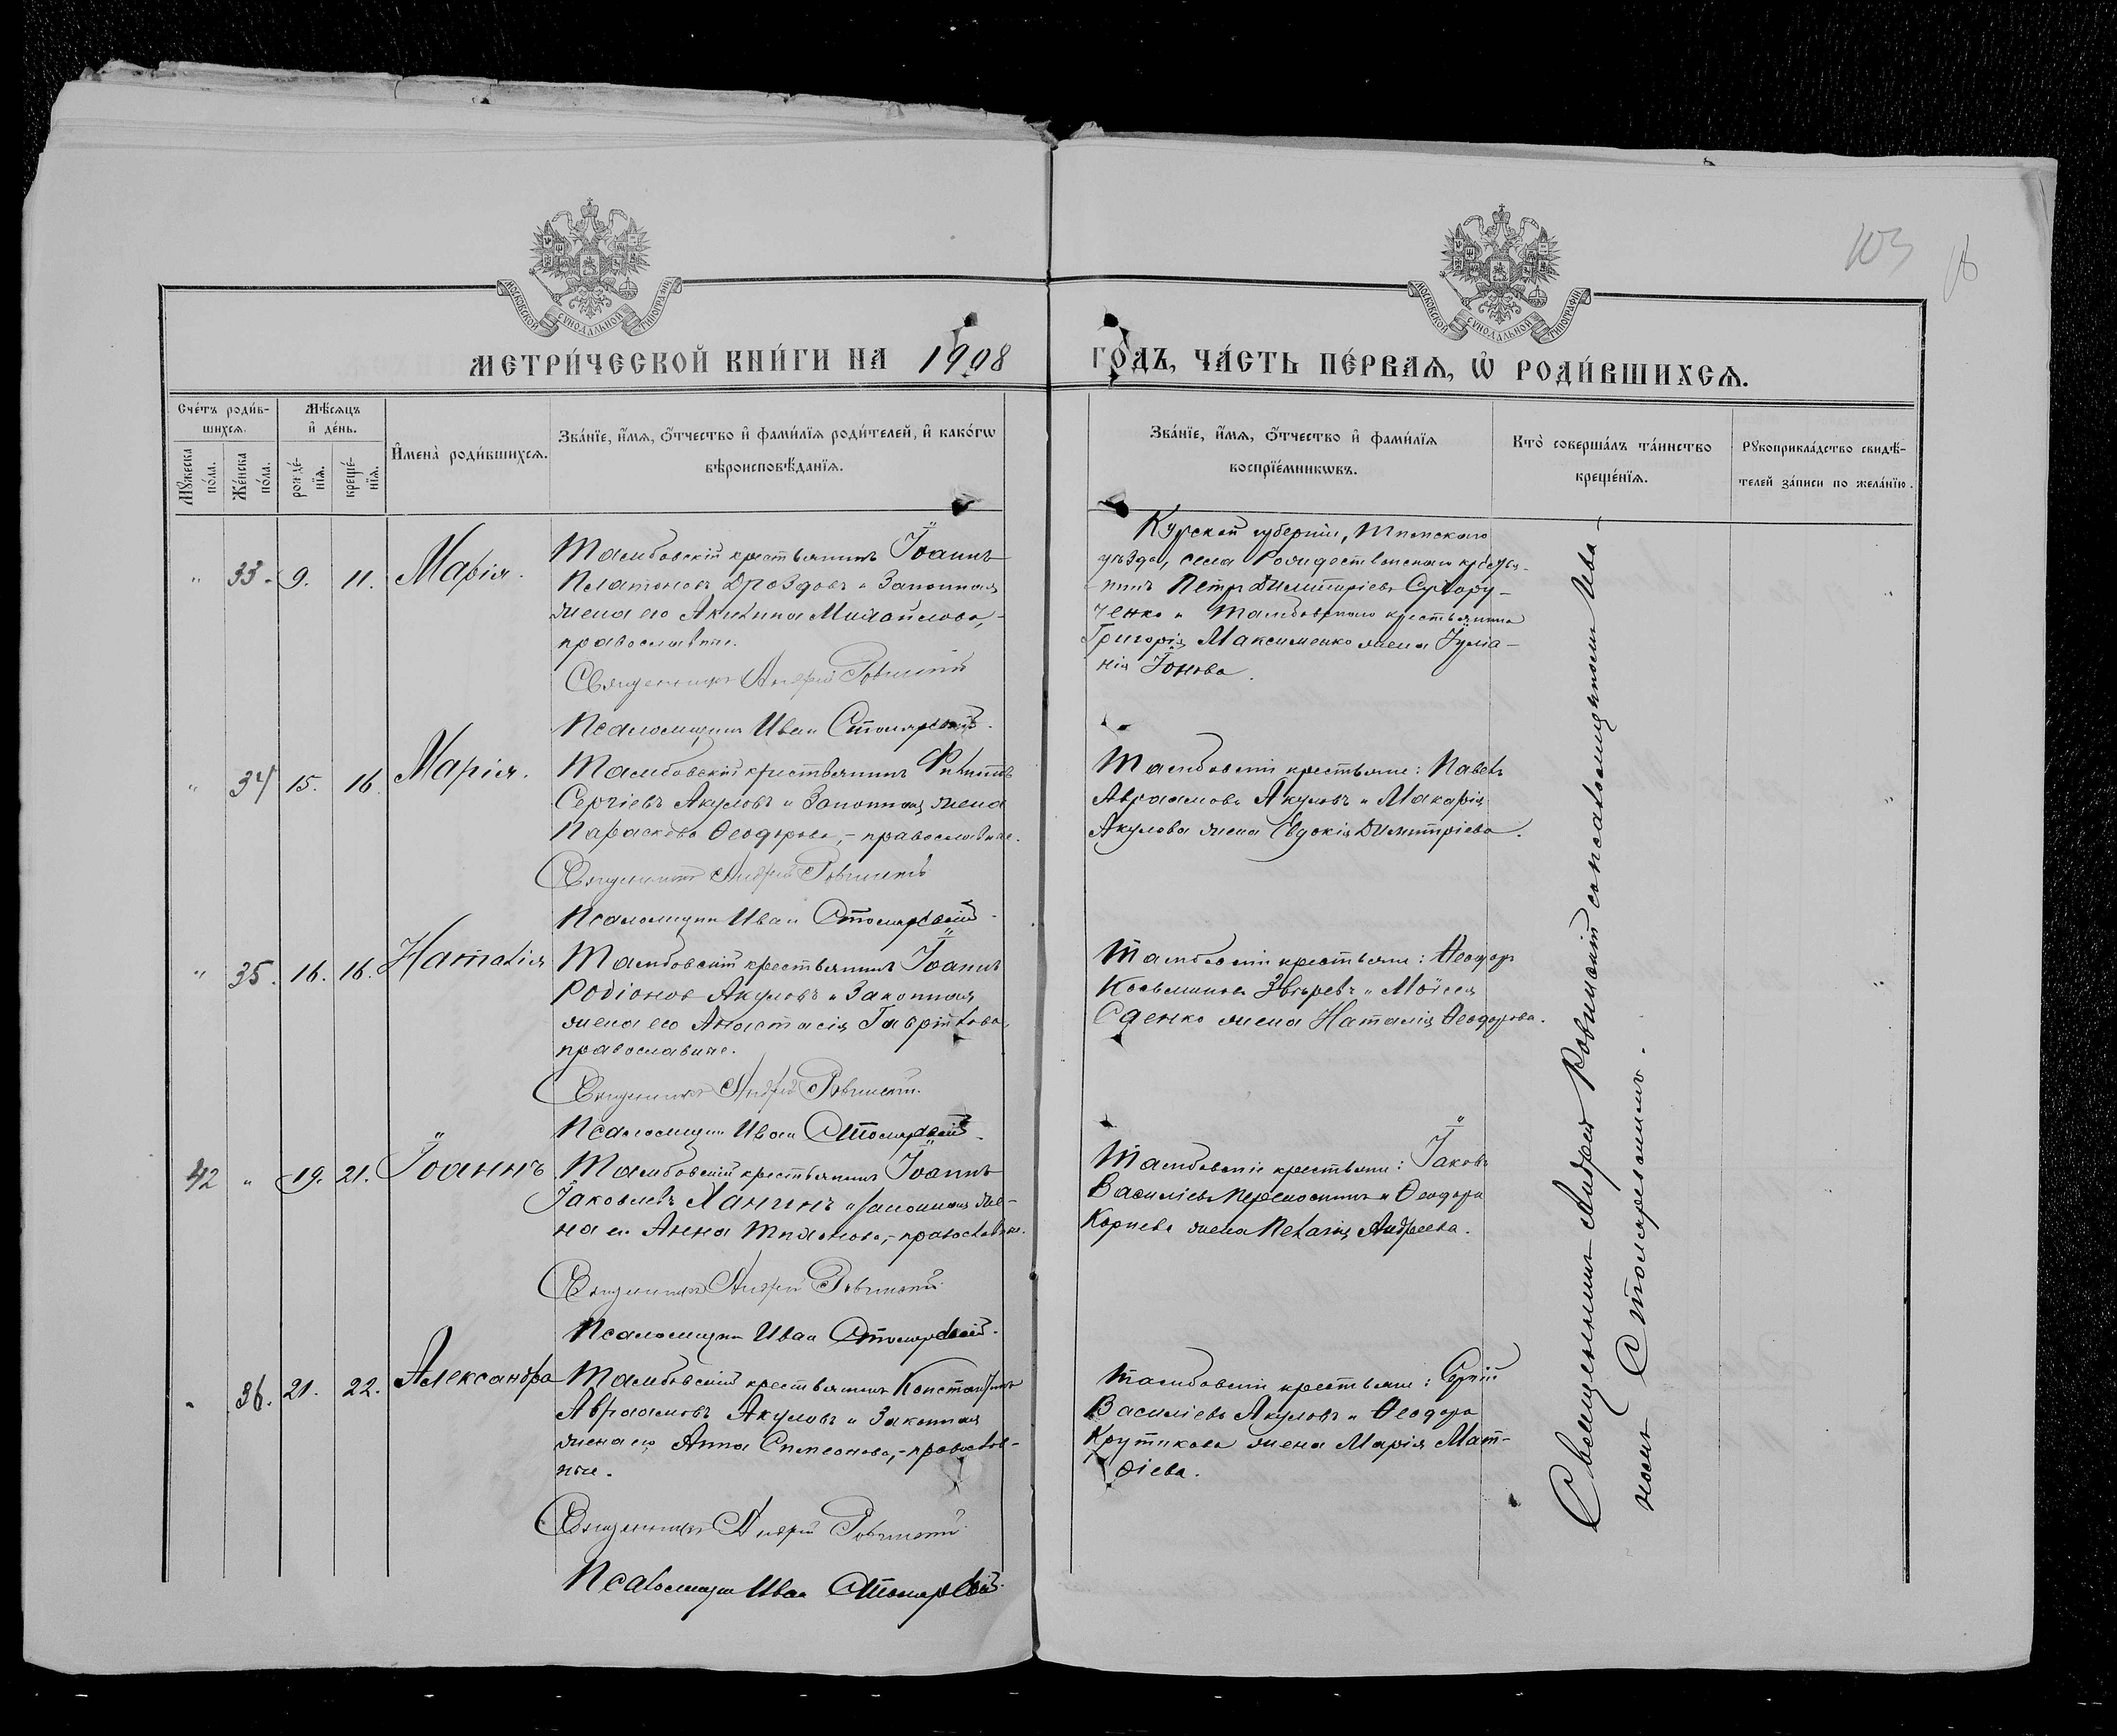 МОСКОВСКОЙ СѴНОДАЛЬНОЙ ТИПОГРАФІИ
МОСКОВСКОЙ СѴНОДАЛЬНОЙ ТИПОГРАФІИ
103
МЕТРИ́ЧЕСКОЙ КНИ́ГИ НА 1908 ГО́ДЪ, ЧА́СТЬ ПЕ́РВАѦ, Ѡ҆ РОДИ́ВШИХСѦ.
Сче́тъ роди́в-
шихсѧ.
Мѣ́сѧцъ
и҆ де́нь.
Мꙋ́жеска по́ла.
Же́нска по́ла.
рожде́-
нїѧ.
креще́-
нїѧ.
И҆мена̀ роди́вшихсѧ.
Зва́нїе, и҆́мѧ, ѻ҆́тчество и҆ фами́лїѧ роди́телей, и҆ како́гѡ
вѣроисповѣ́данїѧ.
Зва́нїе, и҆́мѧ, ѻ҆́тчество и҆ фами́лїѧ
воспрїе́мникѡвъ.
Кто̀ соверша́лъ та́инство
креще́нїѧ.
Рꙋкоприкла́дство свидѣ́-
телей за́писи по жела́нїю.
" 33. 9. 11. Марія.
Тамбовскій крестьянинъ Іоаннъ
Платоновъ Дроздовъ и законная
жена его Акилина Михайлова,-
православные.
Священникъ Андрей
Псаломщикъ Иван Столяревскій.
Курской губерніи, Тимскаго
уѣзда, села Рождественскаго крестья-
нинъ Петръ Димитріевъ Сухору-
ченко и Тамбовскаго крестьянина
Григорія Максименко жена Іуліа-
нія Іонова.
" 34 15. 16. Марія.
Тамбовскій крестьянинъ Филиппъ
Сергіевъ Акуловъ и законная жена
Параскева Ѳеодорова,- православные.
Священникъ Андрей
Псаломщикъ Иван Столяревскій.
Тамбовскіе крестьяне: Павелъ
Авраамовъ Акуловъ и Макарія
Акулова жена Евдокія Димитріева.
" 35. 16. 16. Наталія
Тамбовскій крестьянинъ Іоаннъ
Родіоновъ Акуловъ и законная
жена его Анастасія Гавріилова,
православные.
Священникъ Андрей
Псаломщикъ Иван Столяревскій.
Тамбовскіе крестьяне: Ѳеодоръ
Косьминовъ Звѣревъ и Моисея
жена Наталія Ѳеодорова.
42 " 19. 21. Іоаннъ
Тамбовскій крестьянинъ Іоаннъ
Іаковлевъ Лангинъ и законная же-
на его Анна Тихонова,- православные.
Священникъ Андрей
Псаломщикъ Иван Столяревскій.
Тамбовскіе крестьяне: Іаковъ
Василіевъ и Ѳеодора
Корнева жена Пелагія Андреева.
" 36. 21. 22. Александра
Тамбовскій крестьянинъ Константинъ
Авраамовъ Акуловъ и законная
жена его Анна Симеонова,- православ-
ные.
Священникъ Андрей
Псаломщикъ Иван Столяревскій.
Тамбовскіе крестьяне: Сергій
Василіевъ Акуловъ и Ѳеодора
Крутикова жена Марія Мат-
ѳіева.
Священникъ Андрей съ псаломщикомъ Ива-
номъ Столяревскимъ.